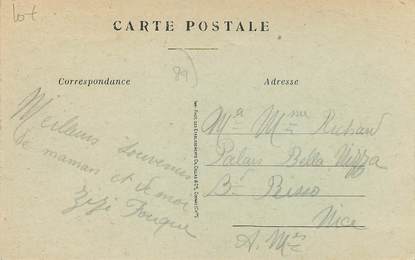 Lot
CARTE POSTALE
89
Correspondance
Adresse
Meilleurs souvenirs
de maman et de moi
Zizi
Mr Mme Richard
Palais Bella Nizza
Bd Risso
Nice
A. Mes